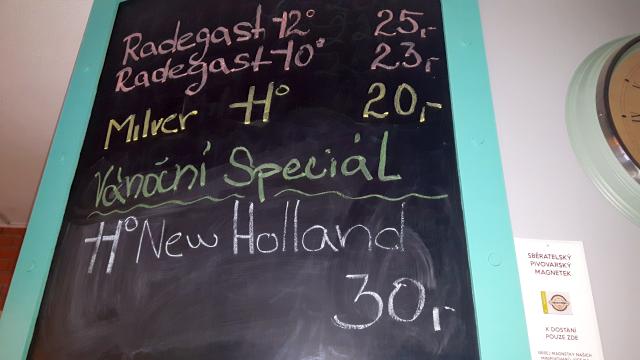 Radegast 12° 25,-
Radegast 10° 23,-
Milver 11° 20,-
Vánoční Speciál
11° New Holland
30,-
SBĚRATELSKÝ
PIVOVARSKÝ
MAGNETEK
K DOSTÁNÍ
POUZE ZDE